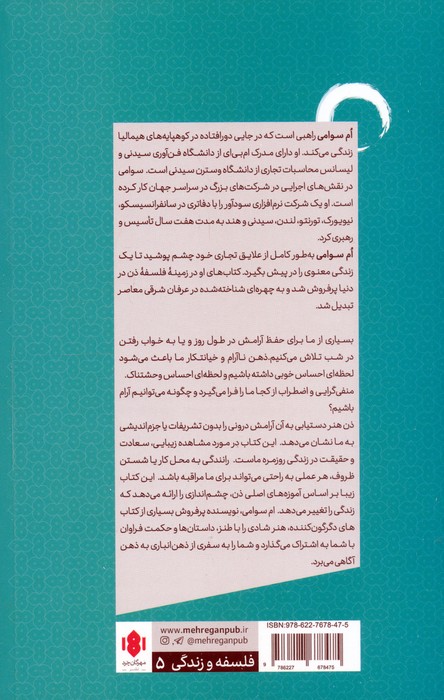 اُم سوامی راهبی است که در جایی دورافتاده در کوهپایه‌های هیمالیا
زندگی می‌کند. او دارای مدرک ام‌بی‌ای از دانشگاه فن‌آوری سیدنی و
لیسانس محاسبات تجاری از دانشگاه وسترن سیدنی است. سوامی
در نقش‌های اجرایی در شرکت‌های بزرگ در سراسر جهان کار کرده
است. او یک شرکت نرم‌افزاری سودآور را با دفاتری در سانفرانسیسکو،
نیویورک، تورنتو، لندن، سیدنی و هند به مدت هفت سال تأسیس و
رهبری کرد.
اُم سوامی به‌طور کامل از علایق تجاری خود چشم پوشید تا یک
زندگی معنوی را در پیش بگیرد. کتاب‌های او در زمینهٔ فلسفهٔ ذن در
دنیا پرفروش شد و به چهره‌ای شناخته‌شده در عرفان شرقی معاصر
تبدیل شد.
بسیاری از ما برای حفظ آرامش در طول روز و یا به خواب رفتن
در شب تلاش می‌کنیم.ذهن ناآرام و خیانتکار ما باعث می‌شود
لحظه‌ای احساس خوبی داشته باشیم و لحظه‌ای احساس وحشتناک.
منفی‌گرایی و اضطراب از کجا ما را فرا می‌گیرد و چگونه می‌توانیم آرام
باشیم؟
ذن هنر دستیابی به آن آرامش درونی را بدون تشریفات یا جزم‌اندیشی
به ما نشان می‌دهد. این کتاب در مورد مشاهده زیبایی، سعادت
و حقیقت در زندگی روزمره ماست. رانندگی به محل کار یا شستن
ظروف، هر عملی به راحتی می‌تواند برای ما مراقبه باشد. این کتاب
زیبا بر اساس آموزه‌های اصلی ذن، چشم‌اندازی را ارائه می‌دهد که
زندگی را تغییر می‌دهد. ام سوامی، نویسنده پرفروش بسیاری از کتاب
های دگرگون‌کننده، هنر شادی را با طنز، داستان‌ها و حکمت فراوان
با شما به اشتراک می‌گذارد و شما را به سفری از ذهن‌انباری به ذهن
آگاهی می‌برد.
ISBN:978-622-7678-47-5
9 786227 678475
www.mehreganpub.ir
mehreganpub
فلسفه و زندگی ۵
مهرگان خرد